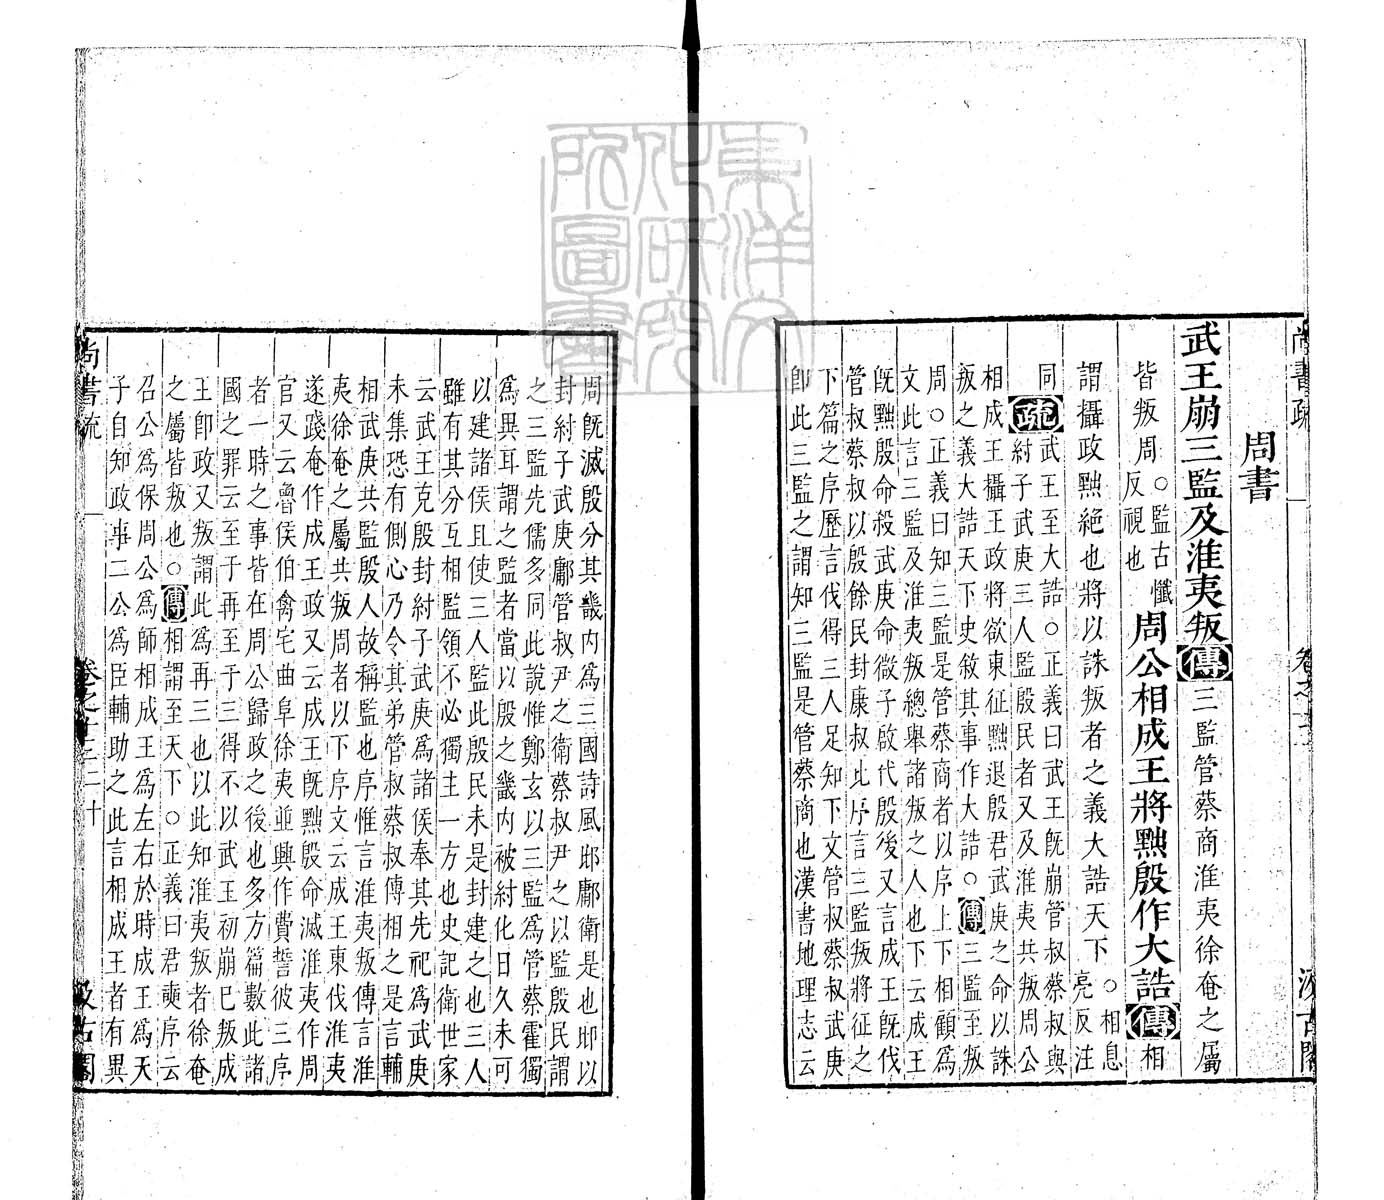 尚書疏 卷之十三 汲古閣
周書
武王崩三監及淮夷叛傳三監管蔡商淮夷徐奄之屬
皆叛周○監古懺反視也周公相成王將黜殷作大誥傳相
謂攝政黜絶也將以誅叛者之義大誥天下○相息亮反注
同疏武王至大誥○正義曰武王旣崩管叔蔡叔與
紂子武庚三人監殷民者又及淮夷共叛周公
相成王攝王政將欲東征黜退殷君武庚之命以誅
叛之義大誥天下史敘其事作大誥○傳三監至叛
周○正義曰知三監是管蔡商者以序上下相顧爲
文此言三監及淮夷叛總舉諸叛之人也下云成王
旣黜殷命殺武庚命微子啟代殷後又言成王旣伐
管叔蔡叔以殷餘民封康叔此序言三監叛將征之
下篇之序歷言伐得三人足知下文管叔蔡叔武庚
卽此三監之謂知三監是管蔡商也漢書地理志云
周旣滅殷分其畿内爲三國詩風邶鄘衛是也邶以
封紂子武庚鄘管叔尹之衛蔡叔尹之以監殷民謂
之三監先儒多同此說惟鄭玄以三監爲管蔡霍獨
爲異耳謂之監者當以殷之畿内被紂化日久未可
以建諸侯且使三人監此殷民未是封建之也三人
雖有其分互相監領不必獨主一方也史記衛世家
云武王克殷封紂子武庚爲諸侯奉其先祀爲武庚
未集恐有側心乃令其弟管叔蔡叔傳相之是言輔
相武庚共監殷人故稱監也序惟言淮夷叛傳言淮
夷徐奄之屬共叛周者以下序文云成王東伐淮夷
遂踐奄作成王政又云成王旣黜殷命滅淮夷作周
官又云魯侯伯禽宅曲阜徐夷並興作費誓彼三序
者一時之事皆在周公歸政之後也多方篇數此諸
國之罪云至于再至于三得不以武王初崩巳叛成
王卽政又叛謂此爲再三也以此知淮夷叛者徐奄
之屬皆叛也○傳相謂至天下○正義曰君奭序云
召公爲保周公爲師相成王爲左右於時成王爲天
子自知政事二公爲臣輔助之此言相成王者有異
尚書疏 卷之十三 二十 汲古閣
東洋文化研究所圖書